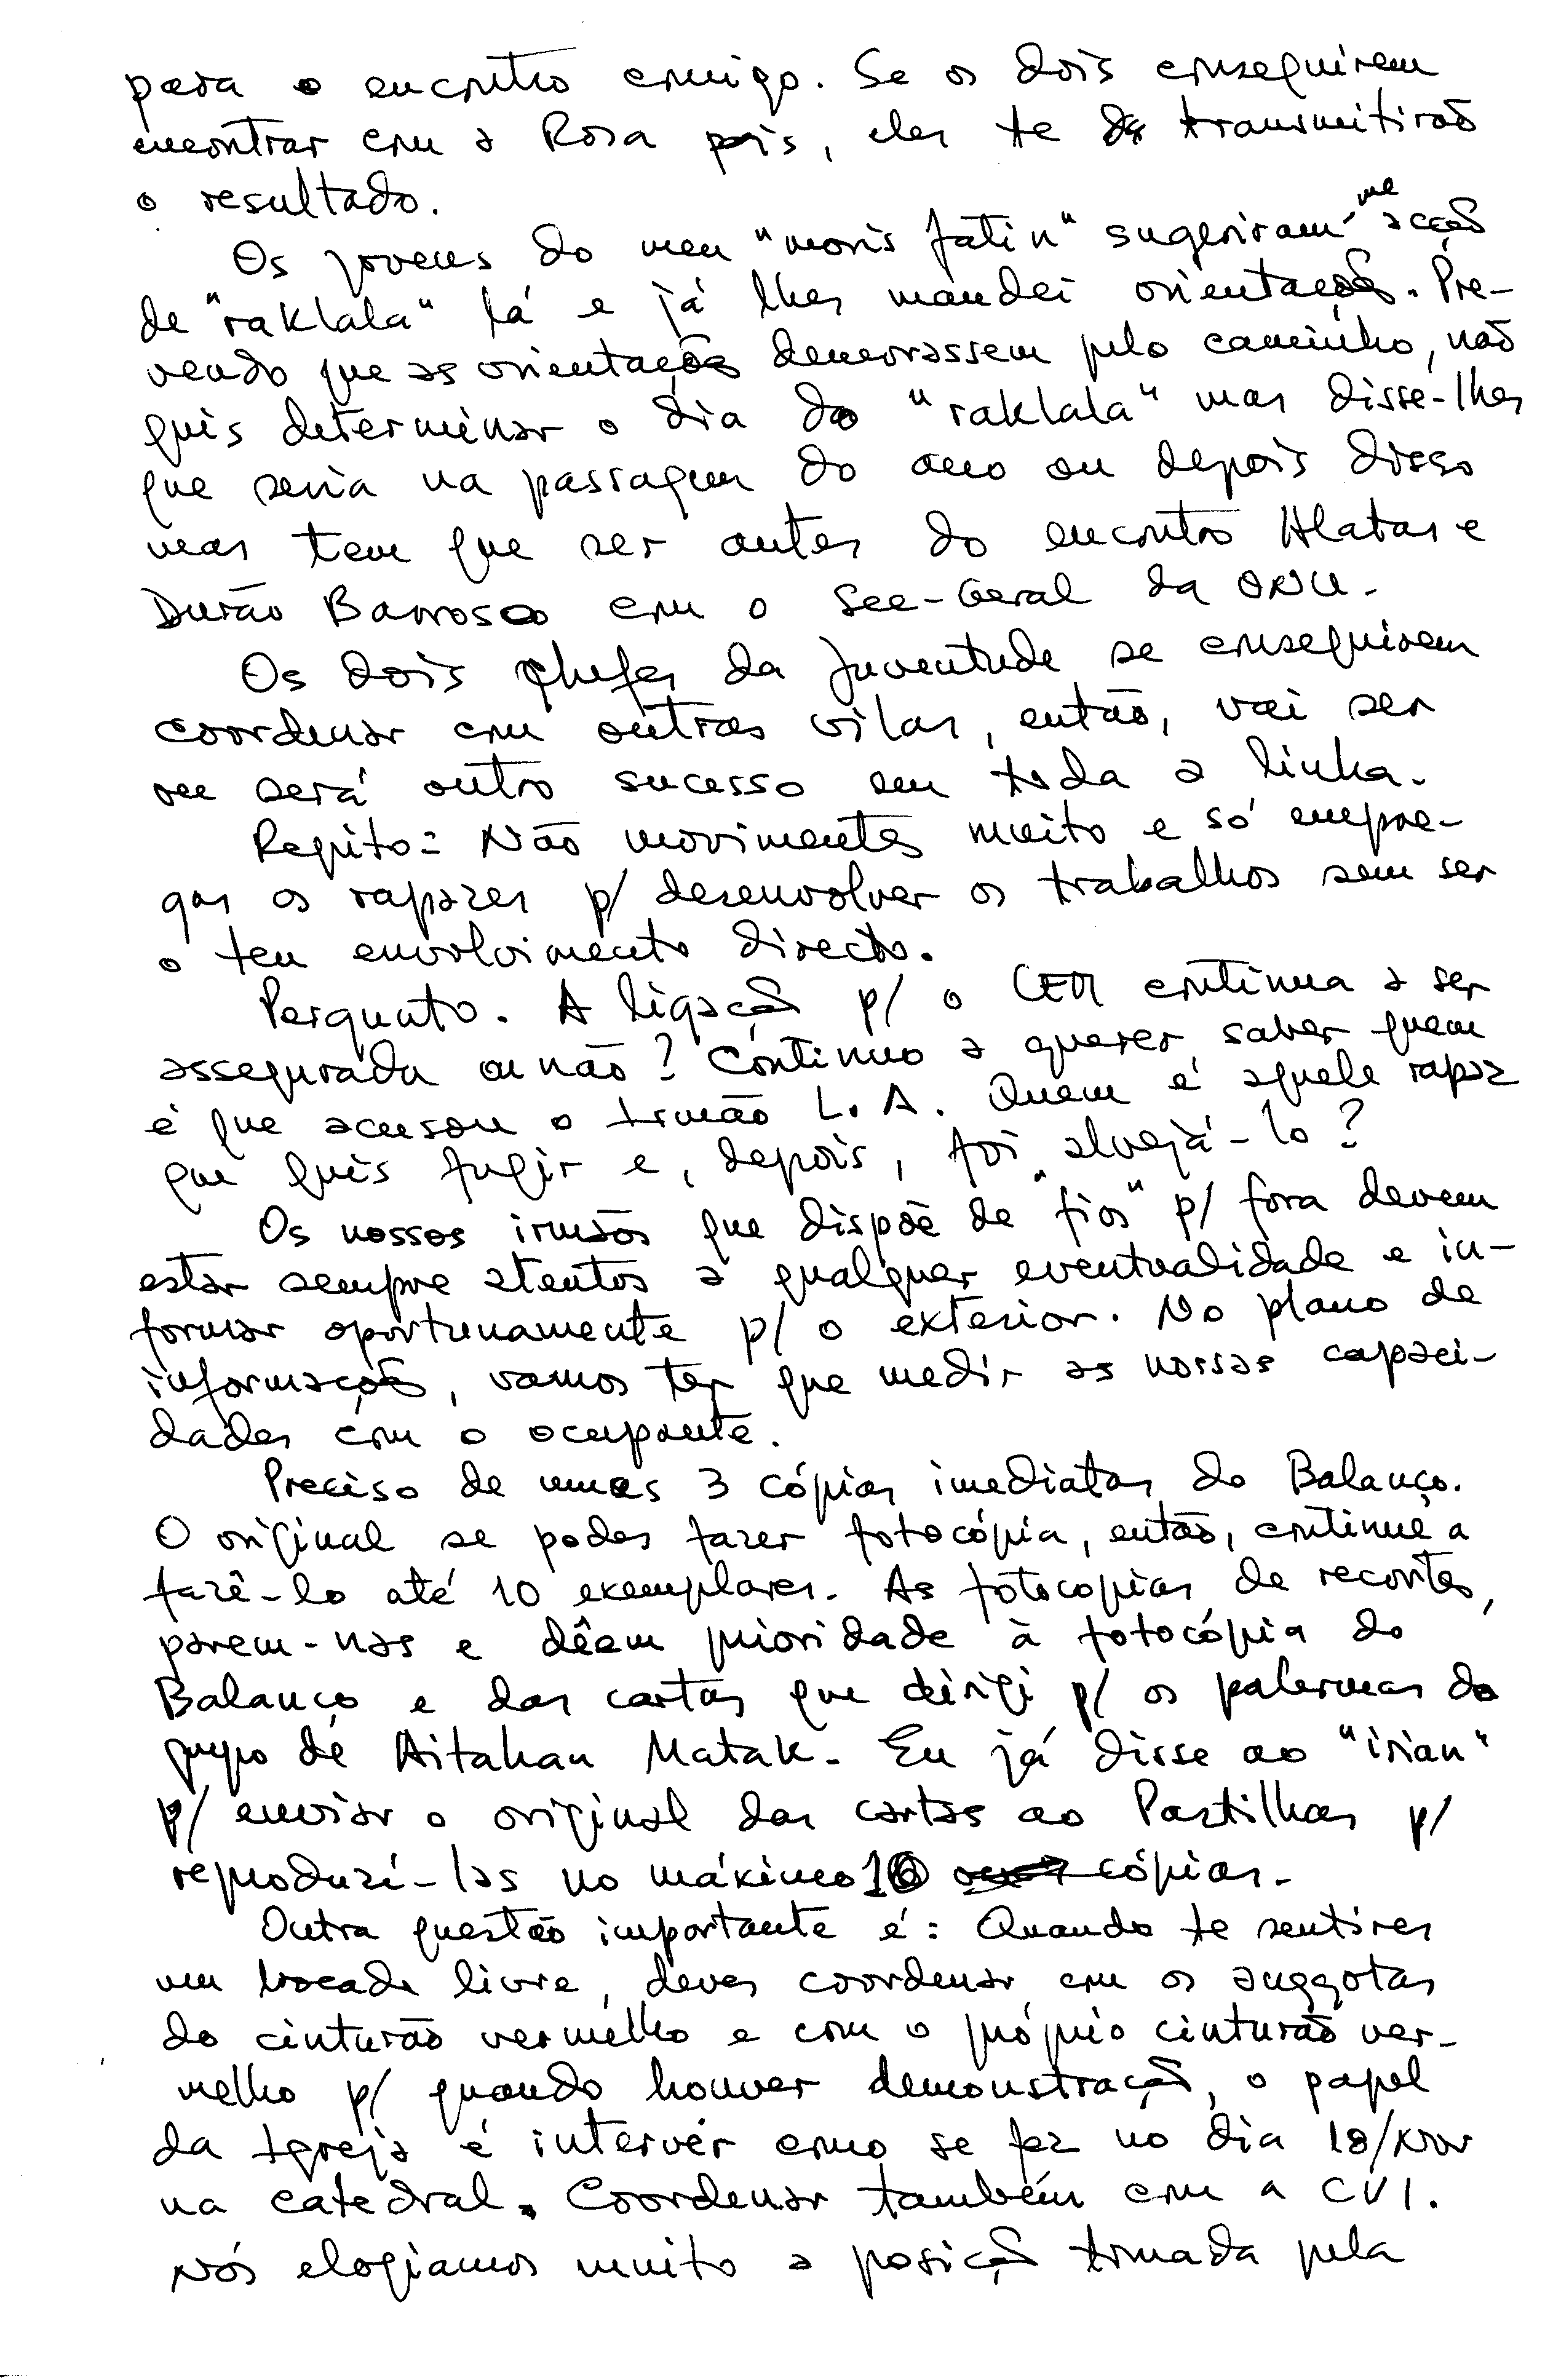 para o encontro comigo. Se os dois conseguirem
encontrar com a Rosa pais, eles te transmitirão
o resultado.
Os jovens do meu "moris fatin" sugeriram-me acção
de "raklala" lá e já lhes mandei orientações. Pre-
vendo que as orientações demorassem pelo caminho, não
quis determinar o dia do "raklala" mas disse-lhes
que seria na passagem do ano ou depois disso
mas tem que ser antes do encontro Alatas e
Durão Barroso com o Sec-Geral da ONU.
Os dois chefes da juventude se conseguirem
coordenar com outras vilas, então, vai ser
ou será outro sucesso em toda a linha.
Repito: Não movimentes muito e só empre-
gas os rapazes p/ desenvolver os trabalhos sem ser
o teu envolvimento directo.
Pergunto. A ligação p/ o CEM continua a ser
assegurada ou não? Continuo a querer saber quem
é que acusou o Irmão L. A. Quem é aquele rapaz
que quis fugir e, depois, foi alvejá-lo?
Os nossos irmãos que dispõe de "fios" p/ fora devem
estar sempre atentos a qualquer eventualidade e in-
formar oportunamente p/ o exterior. No plano de
informações, vamos ter que medir as nossas capaci-
dades com o ocupante.
Preciso de umas 3 cópias imediatas do Balanço.
O original se podes fazer fotocópia, então, continue a
fazê-lo até 10 exemplares. As fotocopias de recortes,
parem-nas e dêem prioridade à fotocópia do
Balanço e das cartas que dirigi p/ os palermas do
grupo de Aitahan Matak. Eu já disse ao "irian"
p/ enviar o original das cartas ao Pastilhas p/
reproduzí-las no máximo 10 cópias.
Outra questão importante é: Quando te sentires
um bocado livre, deves coordenar com os anggotas
do cinturão vermelho e com o próprio cinturão ver-
melho p/ quando houver demonstração, o papel
da Igreja é intervir como se fez no dia 18/Nov
na catedral. Coordenar também com a CVI.
Nós elogiamos muito a posição tomada pela